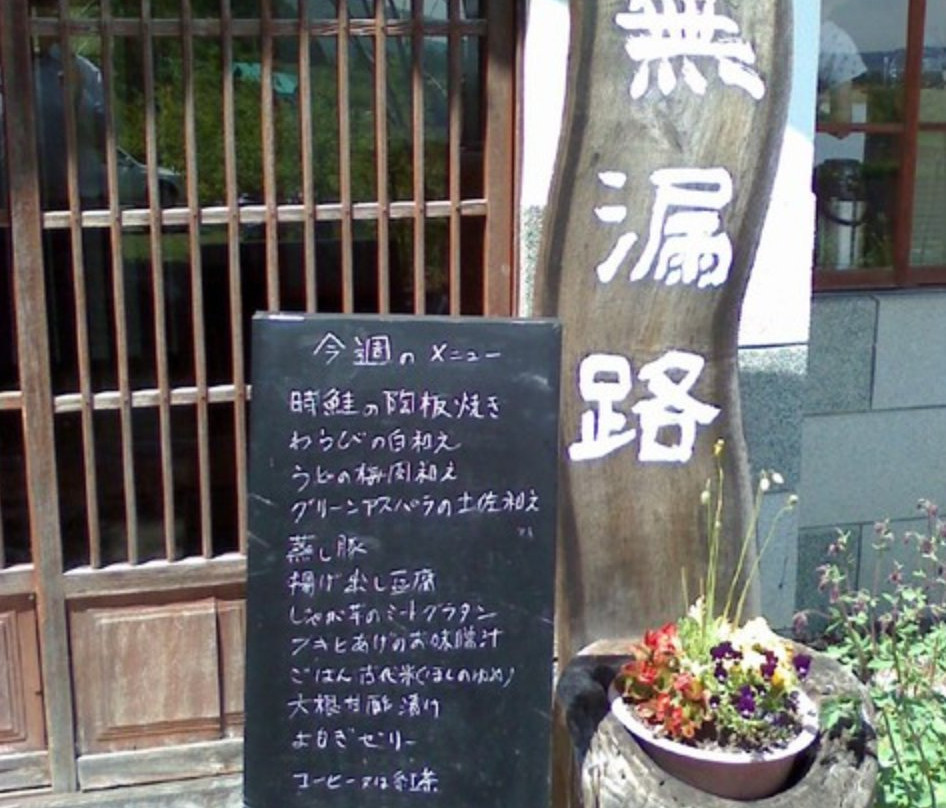 無漏路
今週のメニュー
時鮭の陶板焼き
わらびの白和え
うどの梅肉和え
グリーンアスパラの土佐和え
蒸し豚
揚げ出し豆腐
じゃが芋のミートグラタン
フキとあげのお味噌汁
ごはん 古代米(ほしのゆめ)
大根甘酢漬け
よもぎゼリー
コーヒー又は紅茶